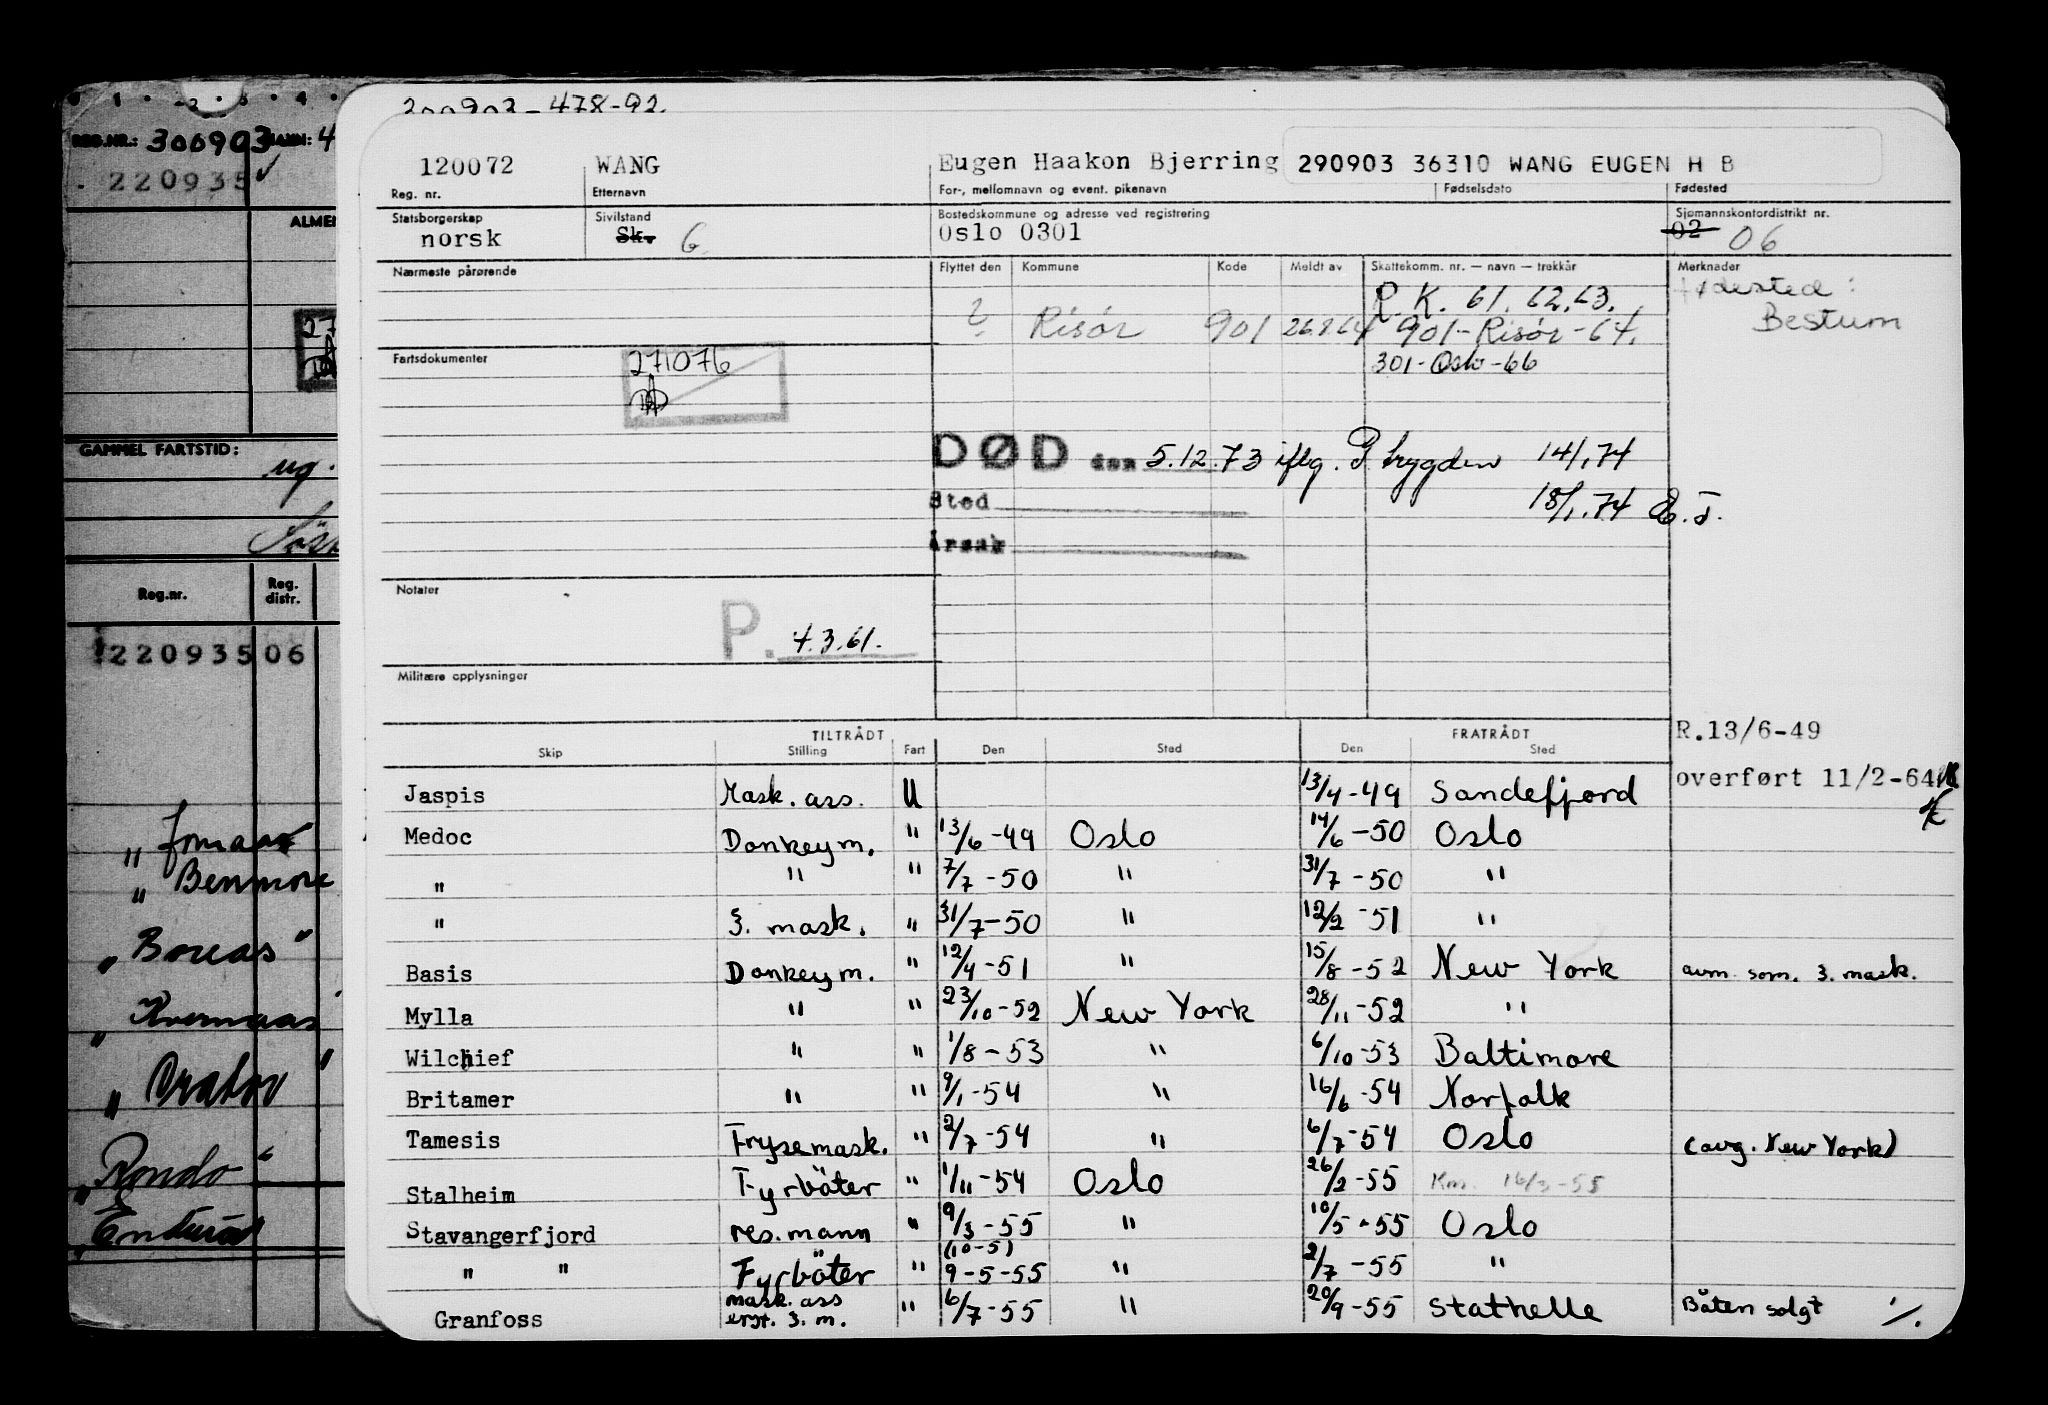 300903-478-92.
REG.NR.: 300903 NAVN: 4
220935
ALMEN
27
GAMMEL FARTSTID:
ug.
Reg.nr. Reg. distr.
122093506
" Benmore
" Boreas"
" Kvernaas"
" Orator"
" Rondo"
120072 WANG Eugen Haakon Bjerring 290903 36310 WANG EUGEN H B
Reg. nr. Etternavn For-, mellomnavn og event. pikenavn Fødselsdato Fødested
Statsborgerskap Sivilstand Bostedskommune og adresse ved registrering Sjømannskontordistrikt nr.
norsk Sk. G. Oslo 0301 02 06
Nærmeste pårørende Flyttet den Kommune Kode Meldt av Skattekomm. nr. — navn — trekkår Merknader
P.K. 61. 62. 63. Fødested:
? Risør 901 26864 901-Risør-64. Bestum
Fartsdokumenter 271076 301-Oslo-66
DØD den 5.12.73 iflg. P trygden 14/1.74
Sted 18/1.74 E.J.
Årsak
Notater
P. 4.3.61.
Militære opplysninger
TILTRÅDT FRATRÅDT R.13/6-49
Skip Stilling Fart Den Sted Den Sted
overført 11/2-64
Jaspis Mask. ass. U 13/4-49 Sandefjord
Medoc Donkeym. " 13/6-49 Oslo 14/6-50 Oslo
" " " 7/7-50 " 31/7-50 "
" 3. mask. " 31/7-50 " 12/2-51 "
Basis Donkeym. " 12/4-51 " 15/8-52 New York avm. som. 3. mask.
Mylla " " 23/10-52 New York 28/11-52 "
Wilchief " " 1/8-53 " 6/10-53 Baltimore
Britamer " " 9/1-54 " 16/6-54 Norfolk
Tamesis Frysemask. " 2/7-54 " 6/7-54 Oslo (avg. New York)
Stalheim Fyrböter " 1/11-54 Oslo 26/2-55 Km. 16/3-55
Stavangerfjord res.mann " 9/3-55 " 10/5-55 Oslo
(10-5)
" " Fyrböter " 9-5-55 " 2/7-55 "
Granfoss mask. ass erst. 3. m. " 6/7-55 " 20/9-55 Stathelle Båten solgt 1/.